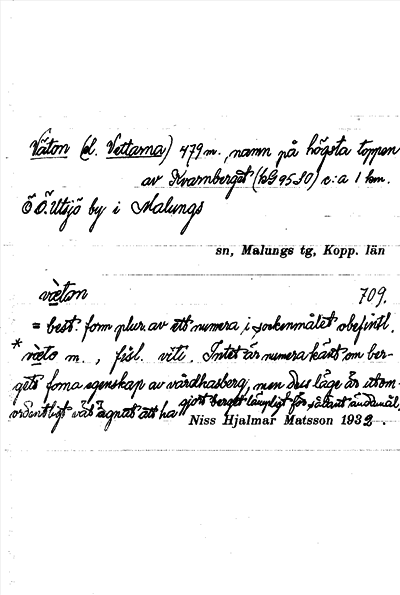 Väton (el. Vettarna) 479 m., namn på högsta toppen
av Kvarnberget (kG 9530) c:a 1 km.
Ö. Ö. Utsjö by i Malungs
sn, Malungs tg, Kopp. län
væton 709.
= best. form plur. av ett numera i sockenmålet obefintl.
* væto m., fisl. viti. Intet är numera känt om ber-
gets forna egenskap av vårdkasberg, men dess läge är utom-
ordentligt väl ägnat att ha gjort berget lämpligt för sådant ändamål.
Niss Hjalmar Matsson 1932.